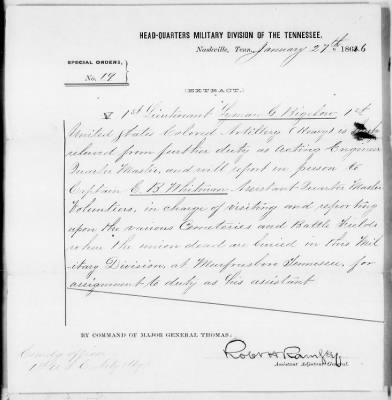 HEAD-QUARTERS MILITARY DIVISION OF THE TENNESSEE,
Nashville, Tenn., January 27th 1866
SPECIAL ORDERS,
No. 19
(EXTRACT.)
V 1st Lieutenant Lyman G. Bigelow 1st
United States Colored Artillery (Heavy) is
relieved from further duty as Acting Engineer
Quarter Master, and will report in person to
Captain E. B. Whitman Assistant Quarter Master
Volunteers, in charge of visiting and reporting
upon the various Cemeteries and Battle Fields
where the union dead are buried in this Mil-
itary Division, at Murfreesboro Tennessee, for
assignment to duty as his assistant
BY COMMAND OF MAJOR GENERAL THOMAS:
Robt H Ramsey
Assistant Adjutant General.
Comdg Officer